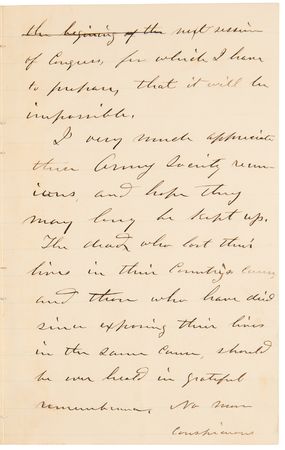 the begining of the next session
of Congress, for which I have
to prepare, that it will be
impossible.
I very much appreciate
these Army Society reun-
ions, and hope they
may long be kept up.
The dead, who lost their
lives in their Country's cause,
and those who have died
since exposing their lives
in the same cause, should
be ever heald in grateful
remembrance. No more
conspicuous